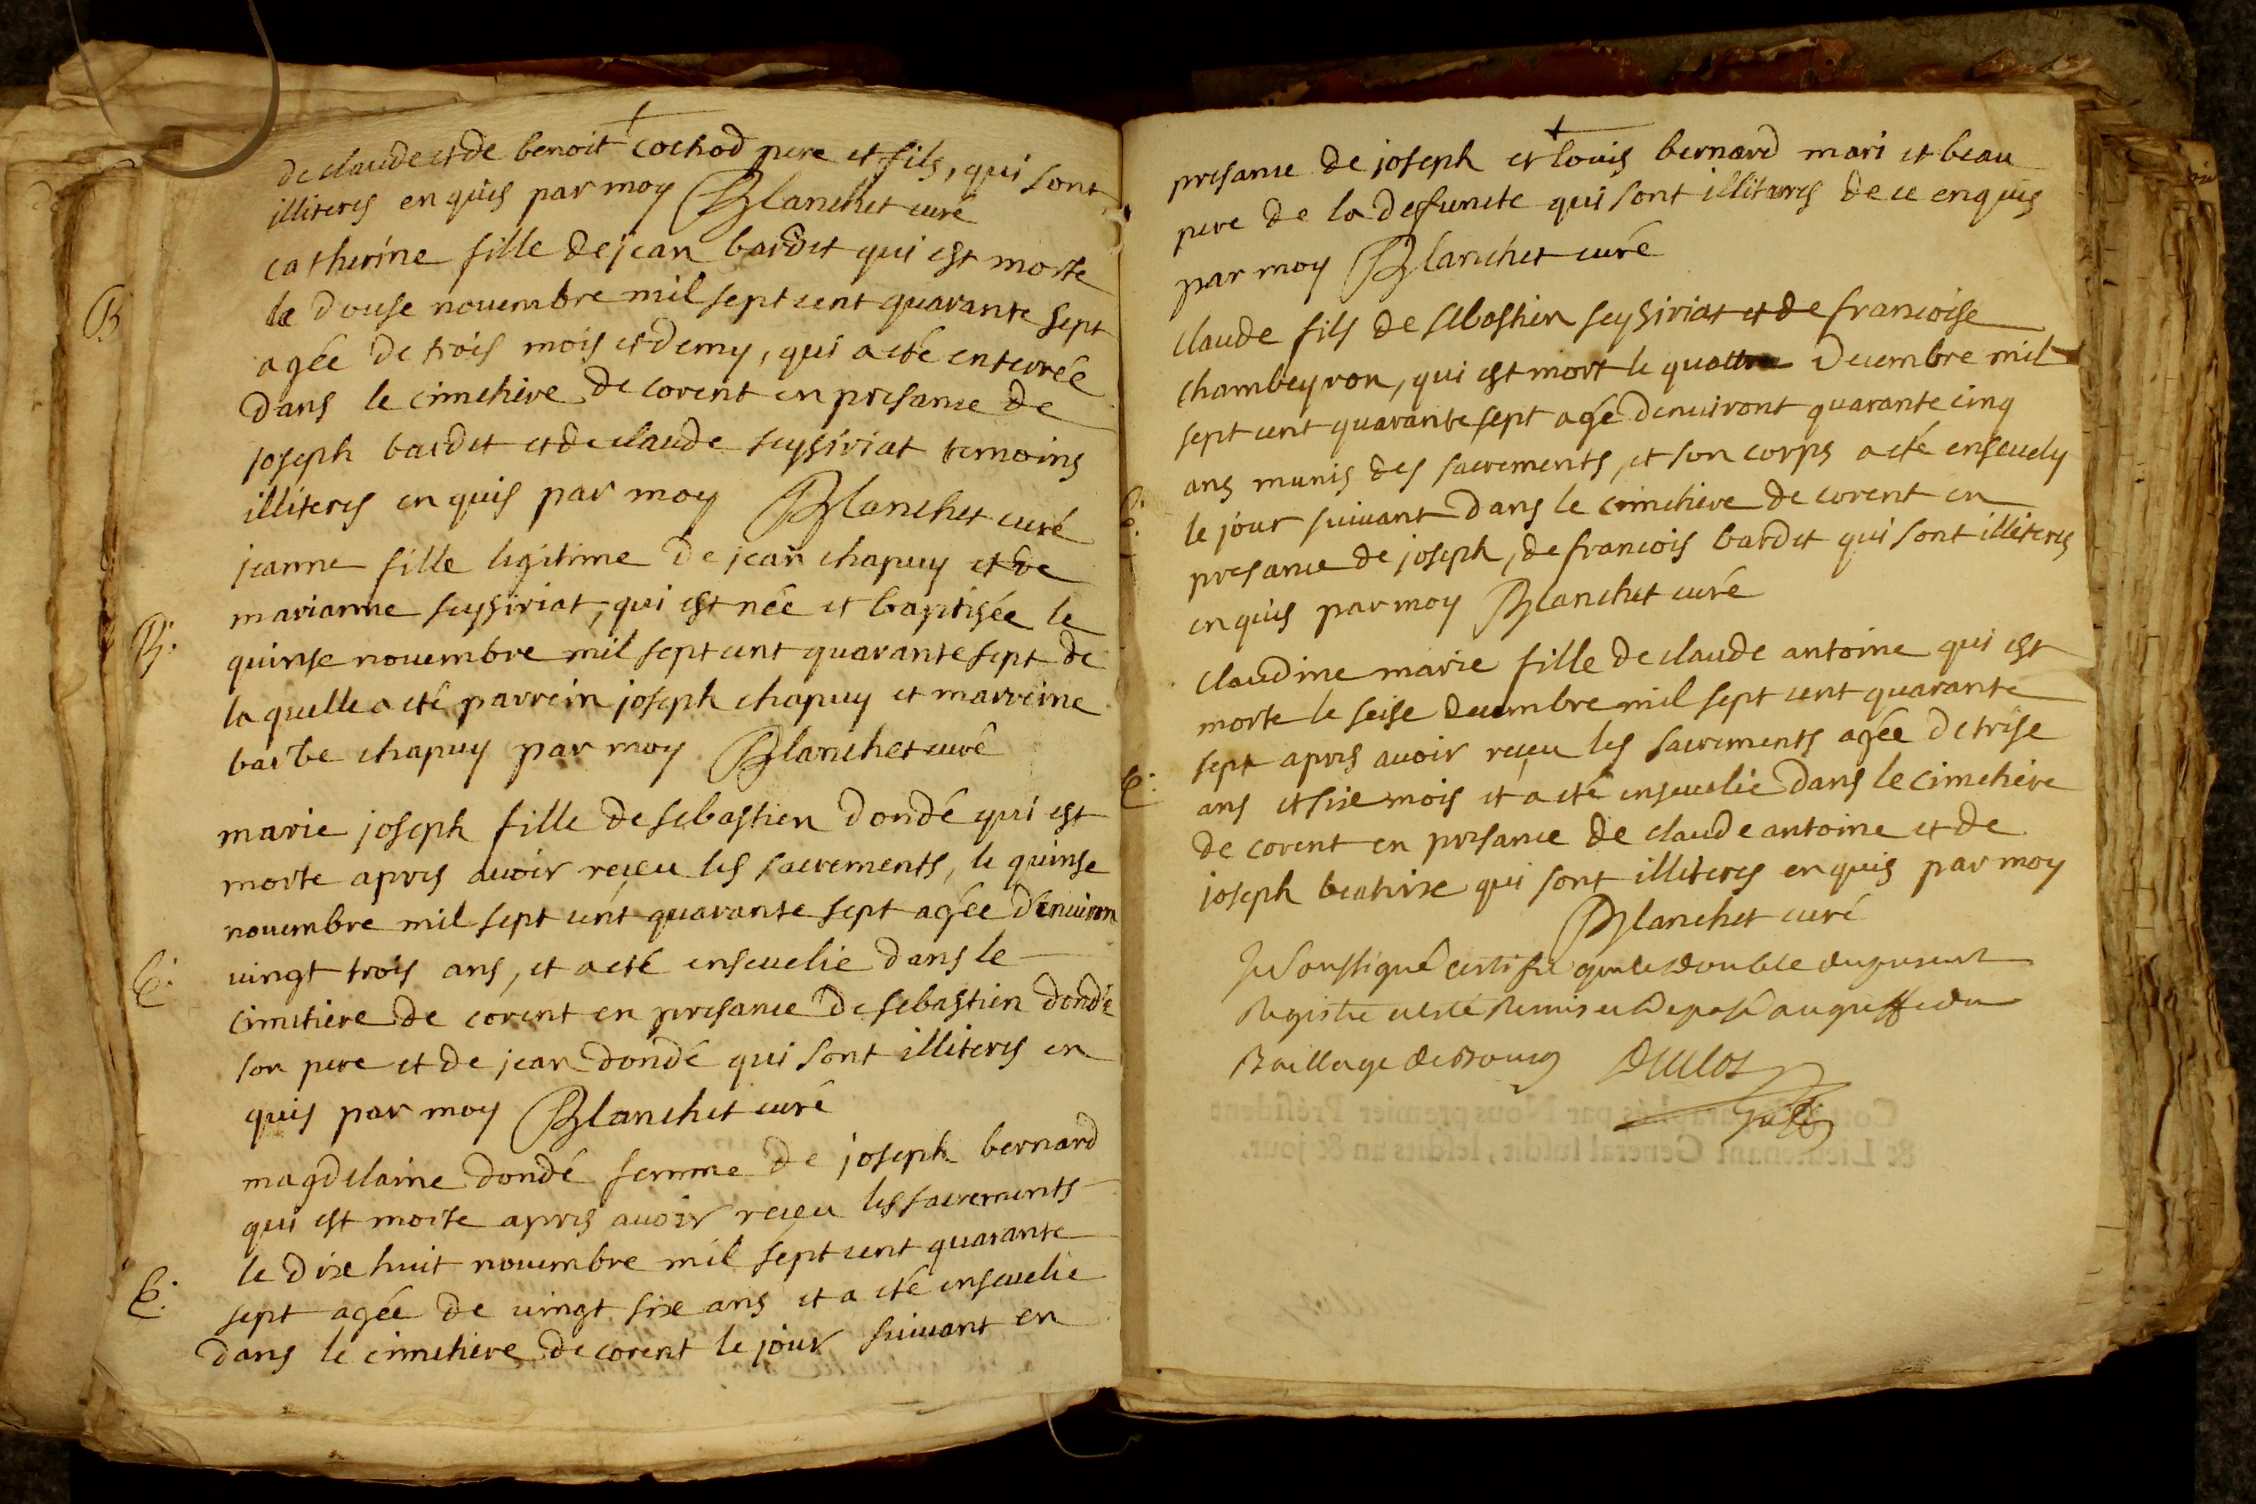 de claude et de benoit cochod pere et fils, qui sont
illiteres en quis par moy Blanchet curé
catherine fille de jean bardet qui est morte
B.
le douse nouembre mil sept cent quarante sept
agée de trois mois et demy, qui a eté enterrée
dans le cimetiere de corent en presance de
joseph bardet et de claude seysiriat temoins
illiteres en quis par moy Blanchet curé
jeanne fille legitime de jean chapuy et de
marianne seysiriat, qui est née et baptisée le
B.
quinse nouembre mil sept cent quarante sept de
la quelle a eté parrein joseph chapuy et marreine
barbe chapuy par moy Blanchet curé
marie joseph fille de sebastien dondé qui est
morte apres auoir reçeu les sacrements, le quinse
nouembre mil sept cent quarante sept agée denuiron
E.
uingt trois ans, et a eté enseuelie dans le
cimetiere de corent en presance de sebastien dondé
son pere et de jean dondé qui sont illiteres en
quis par moy Blanchet curé
magdelaine dondé femme de joseph bernard
qui est morte apres auoir reçeu les sacrements
le dixe huit nouembre mil sept cent quarante
E.
sept agée de uingt sixe ans et a eté enseuelie
dans le cimetiere de corent le jour suiuant en
presance de joseph et louis bernard mari et beau
pere de la defuncte qui sont illiteres de ce enquis
par moy Blanchet curé
claude fils de sebastien seysiriat et de francoise
chambeyron, qui est mort le quattre decembre mil
sept cent quarante sept agé denuiront quarante cinq
ans munis des sacrements, et son corps a eté enseuely
E.
le jour suiuant dans le cimetiere de corent en
presance de joseph, de francois bardet qui sont illiteres
en quis par moy Blanchet curé
claudine marie fille de claude antoine qui est
morte le seise decembre mil sept cent quarante
sept apres auoir reçeu les sacrements agée de trese
E.
ans et sixe mois et a eté enseuelie dans le cimetiere
de corent en presance de claude antoine et de
joseph beatrixe qui sont illiteres en quis par moy
Blanchet curé
Je soussigné certifie que le double du present
Registre a esté Remis et deposé au greffe du
Baillage de Bourg